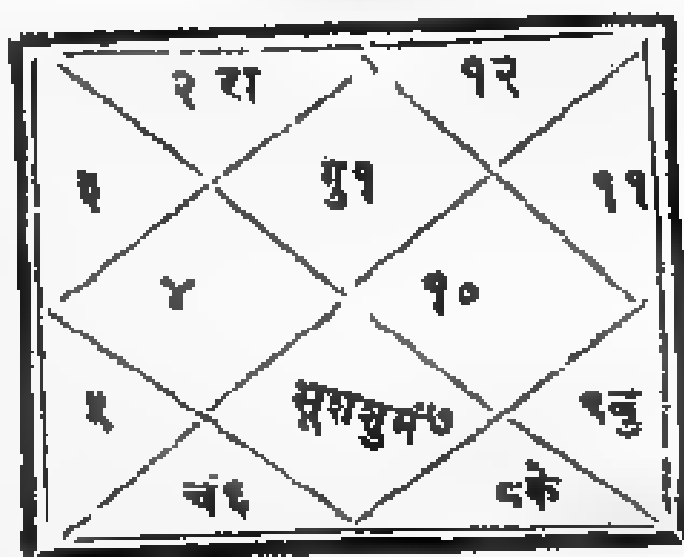 २ रा १२
गु१
३ ११
४ १०
५
सूशशुमं७
९बु
चं६ ८के